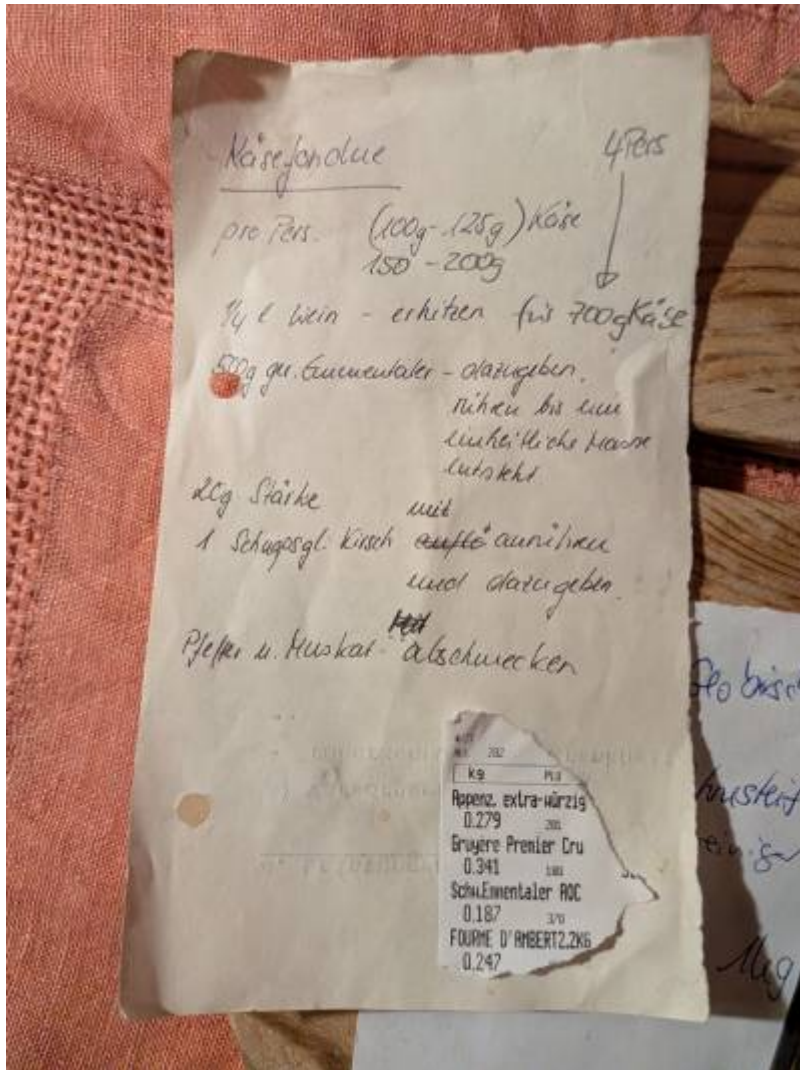 Käsefondue
4 Pers
pro Pers. (100g-125g) Käse
150-200g
1/4 l Wein - erhitzen für 700g Käse
500g ger. Emmentaler - dazugeben.
rühren bis eine
einheitliche Masse
entsteht
20g Stärke mit
1 Schnapsgl. Kirsch anrühren
und dazugeben.
Pfeffer u. Muskat - abschmecken
282
kg PLU
Appenz. extra-würzig
0.279
Gruyere Premier Cru
0.341
Schw.Emmentaler AOC
0.187 370
FOURME D'AMBERT2.2KG
0.247
1kg